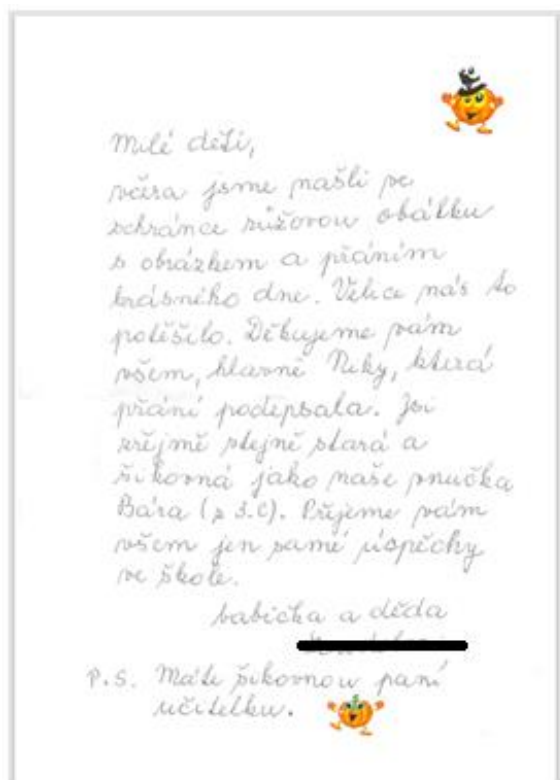 Milé děti,
včera jsme našli ve
schránce růžovou obálku
s obrázkem a přáním
krásného dne. Velice nás to
potěšilo. Děkujeme vám
všem, hlavně Niky, která
přání podepsala. Jsi
zřejmě stejně stará a
šikovná jako naše vnučka
Bára (z 3.C). Přejeme vám
všem jen samé úspěchy
ve škole.
babička a děda
P.S. Máte šikovnou paní
učitelku.